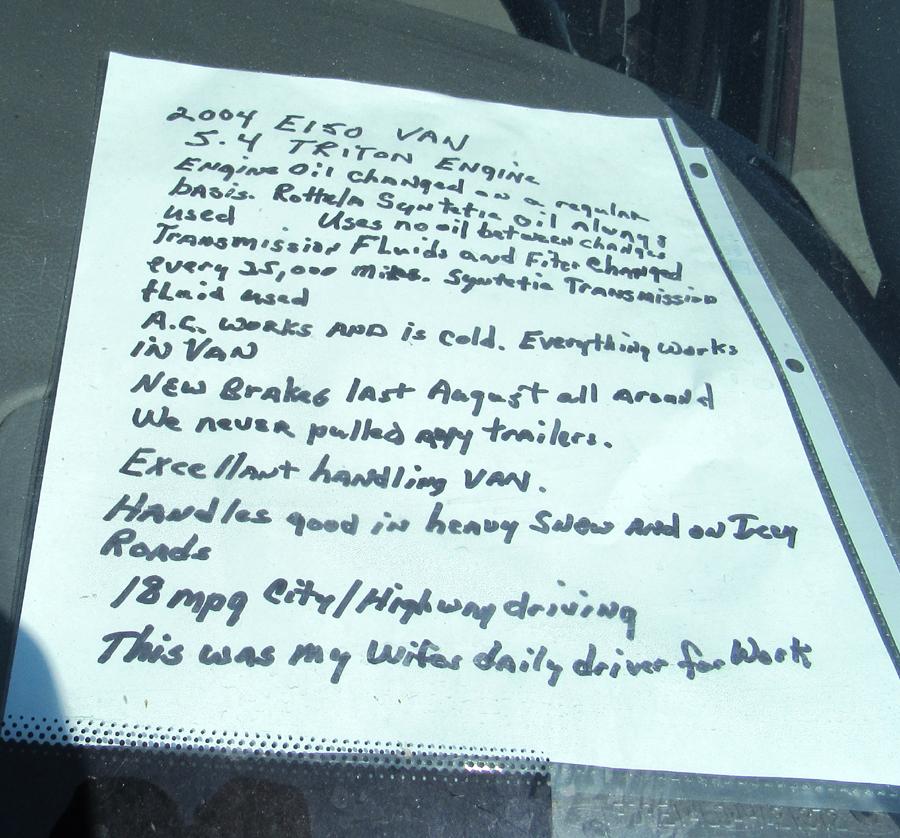 2004 E150 VAN
5.4 TRITON ENGINE
ENGINE Oil changed on a regular
basis. Rottela Syntetic Oil Always
used Uses no oil between changes
TRANSMISSION Fluids and Filter Changed
every 25,000 miles. Syntetic Transmission
fluid used
A.C. works AND is cold. Everything works
IN VAN
NEW Brakes last August all around
We never pulled any trailers.
Excellant handling VAN.
HANDles good in heavy SNOW AND on Icey
Roads
18 mpg City/Highway driving
This was my Wifes daily driver for Work